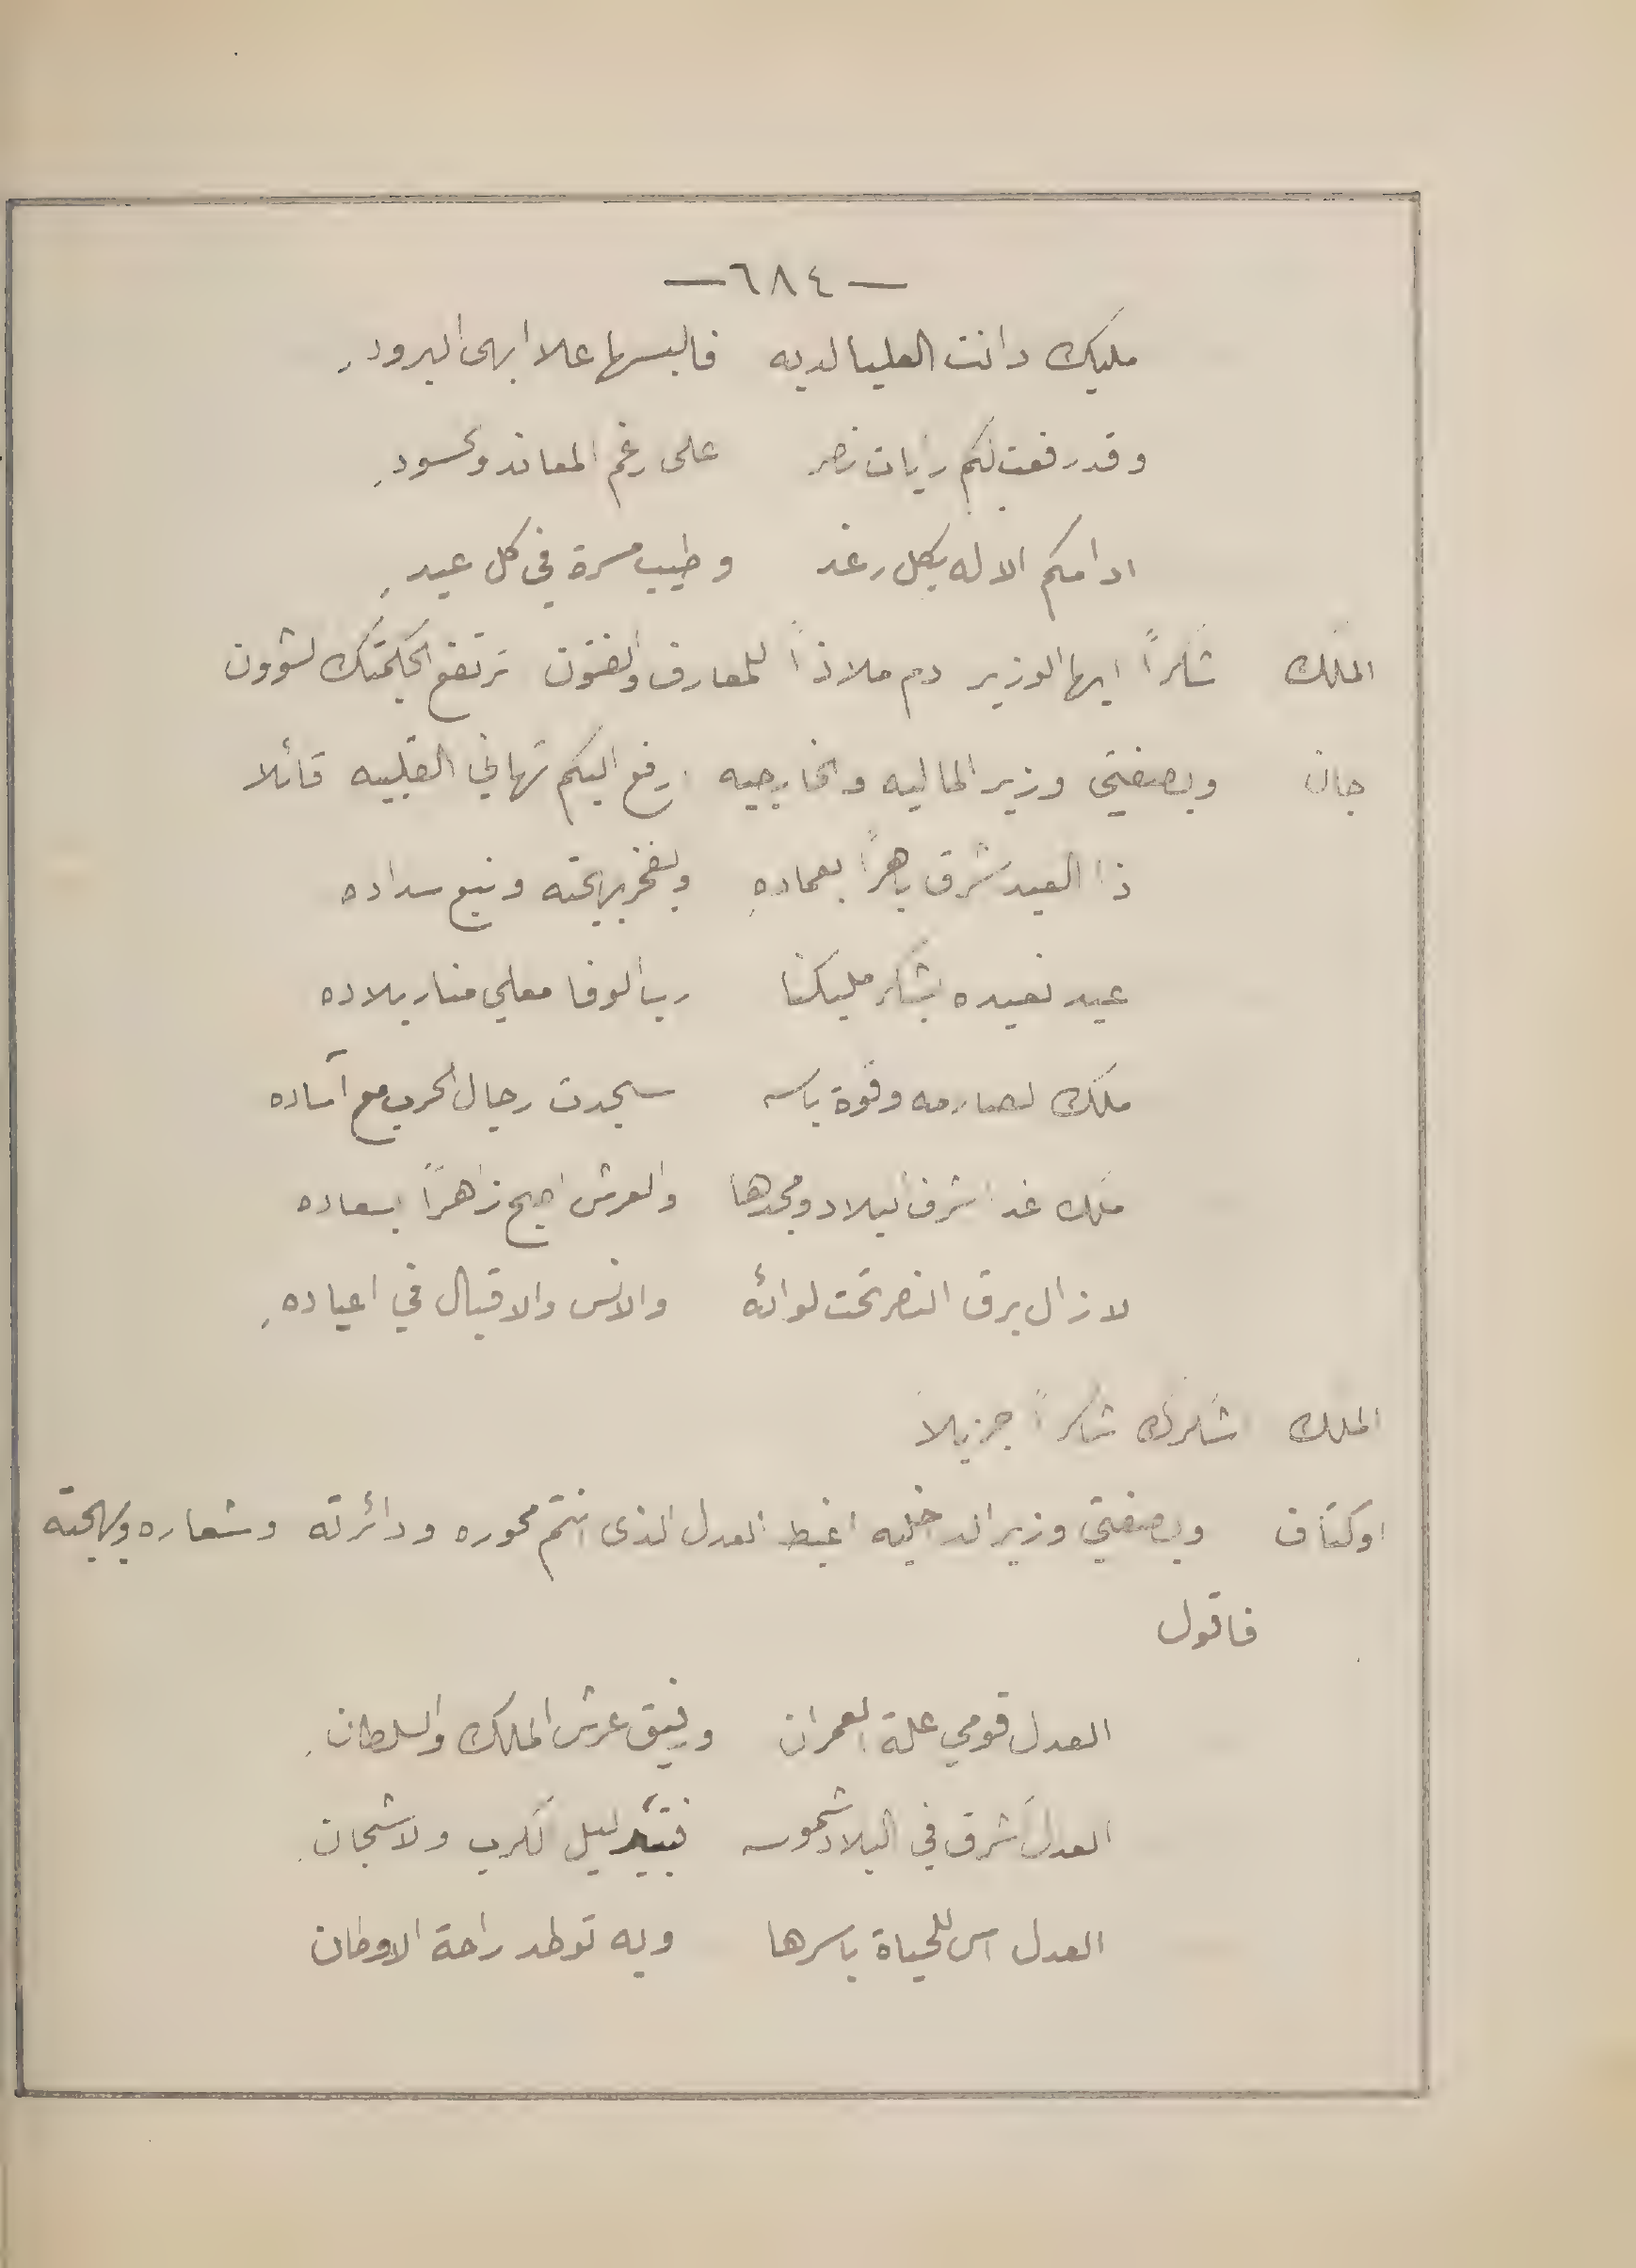 — ٦٨٤ —
مليك دانت العليا لديه    فالبسها علا ابهى البرودِ
وقد رفعت لكم رايات نصر    على رغم المعاند والحسودِ
ادامكم الاله بكل رغد    وطيب مسرة في كل عيدِ
الملك    شكراً ايها الوزير دم ملاذاً للمعارف والفنون ترتفع بحكمتك الشوون
جان    وبصفتي وزير الماليه والخارجيه ارفع اليكم تهاني القلبيه قائلا
ذا العيد اشرق باهراً بعمادهِ    وبفخر بهجته ونبع سداده
عيد نعيده بشكر مليكنا    رب الوفا معلي منار بلاده
ملك لصارمه وقوة باسه    سجدت رجال الحرب مع آساده
ملك غدا شرف البلاد ومجدها    والعرش اصبح زاهراً بسعاده
لا زال برق النصر تحت لوائه    والانس والاقبال في اعيادهِ
الملك    اشكرك شكراً جزيلاً
اوكتاف    وبصفتي وزير الداخليه اغبط العدل الذى انتم محوره ودائرته وشعاره وبهجته
فاقول
العدل قومي علة العمران    ورفيق عرش الملك والسلطانِ
العدل اشرق في البلاد شموسه    ليل الكرب والاشجانِ
العدل اس للحياة باسرها    وبه توطد راحة الاوطان